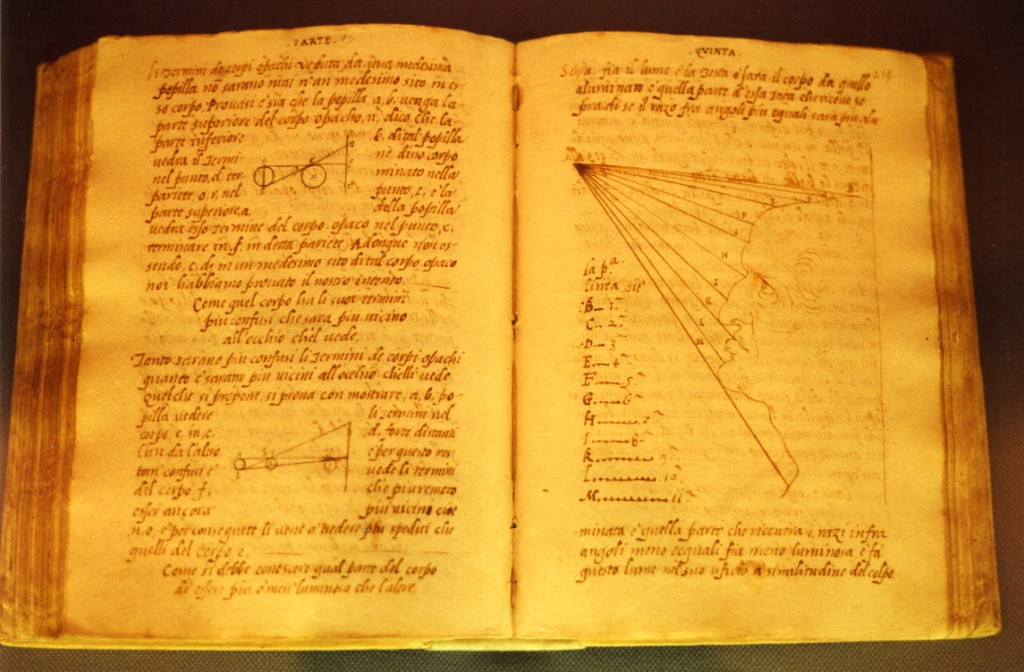 PARTE
li termini de corpi opachi veduta da una medesima
popilla nō sarano mai n'un medesimo sito in es-
so corpo, Provasi e sia che la popilla, a, b, venga la
parte superiore del corpo opacho, n, dico, che la
parte inferiore b, di tal popilla
vedra il Termi ne d'esso corpo
nel punto, d, ter minato nella
pariete, o, r, nel punto, e, e la
parte superiore, a, della popilla
vedra esso Termine del corpo, opaco nel punto, c,
terminare in, f, in detta pariete, Adonque non es-
sendo, c, d, in un medesimo sito di tal corpo opaco
noi habbiamo provato il nostro intento.
Come quel corpo ha li suoi termini
piu confusi che sara piu vicino
all'occhio che'l vede.
Tanto sarano piu confusi li Termini de corpi opachi
quanto e' sarani piu vicini all'occhio che li vede
quel che si propone, si prova con mostrare, a, b, po-
pilla vedere li termini nel
corpo, e, in, c, d, forte distanti
l'un da l'altro e per questo res-
tan' confusi e vede li termini
del corpo f, che piu remoto
esser ancora piu vicini cioe
n, o, e per conseguite li viene a vedere piu spediti che
quelli del corpo e,
Come si debbe conoscere qual parte del corpo
de essere piu o men' luminosa che l'altre,
QVINTA
219.
Se, a, fia il lume e la testa e' sara il corpo da quello
aluminato e quella parte d'essa testa che riceve so-
pra di se il razo fra angoli piu equali sara piu alu-
la pª.
linea sie
B 1ª
C 2ª
D 3
E 4ª
F 5ª
G 6ª
H 7ª
I 8ª
K 9ª
L 10ª
M 11ª
minata e quella parte che ricevera i razi infra
angoli meno eequali fia meno luminosa, e fa
questo lume nel suo uficio a similitudine del colpo